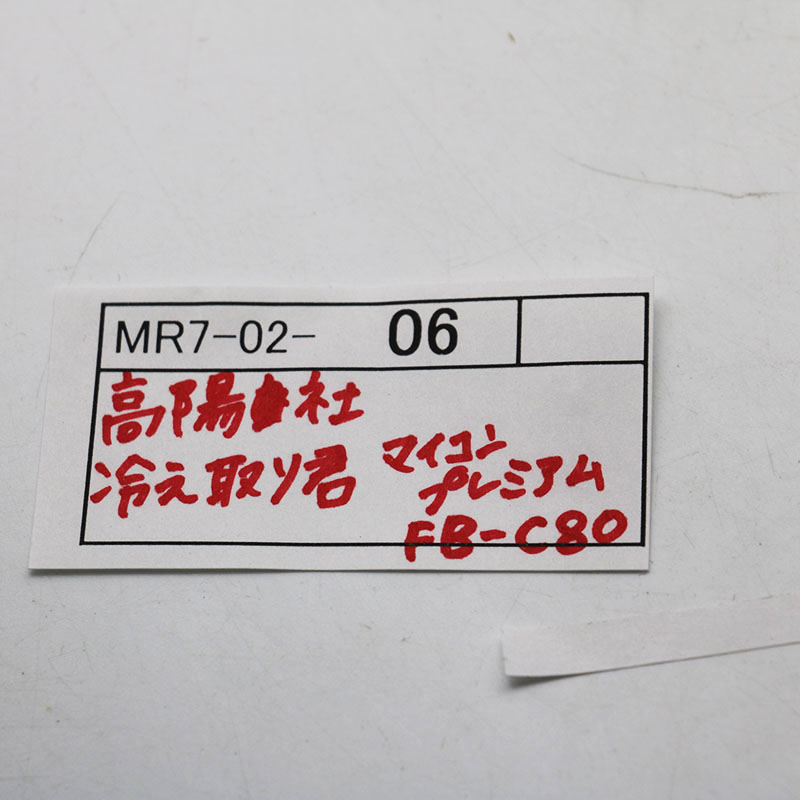 MR7-02- 06
高陽社
冷え取り君
マイコン
プレミアム
FB-C80